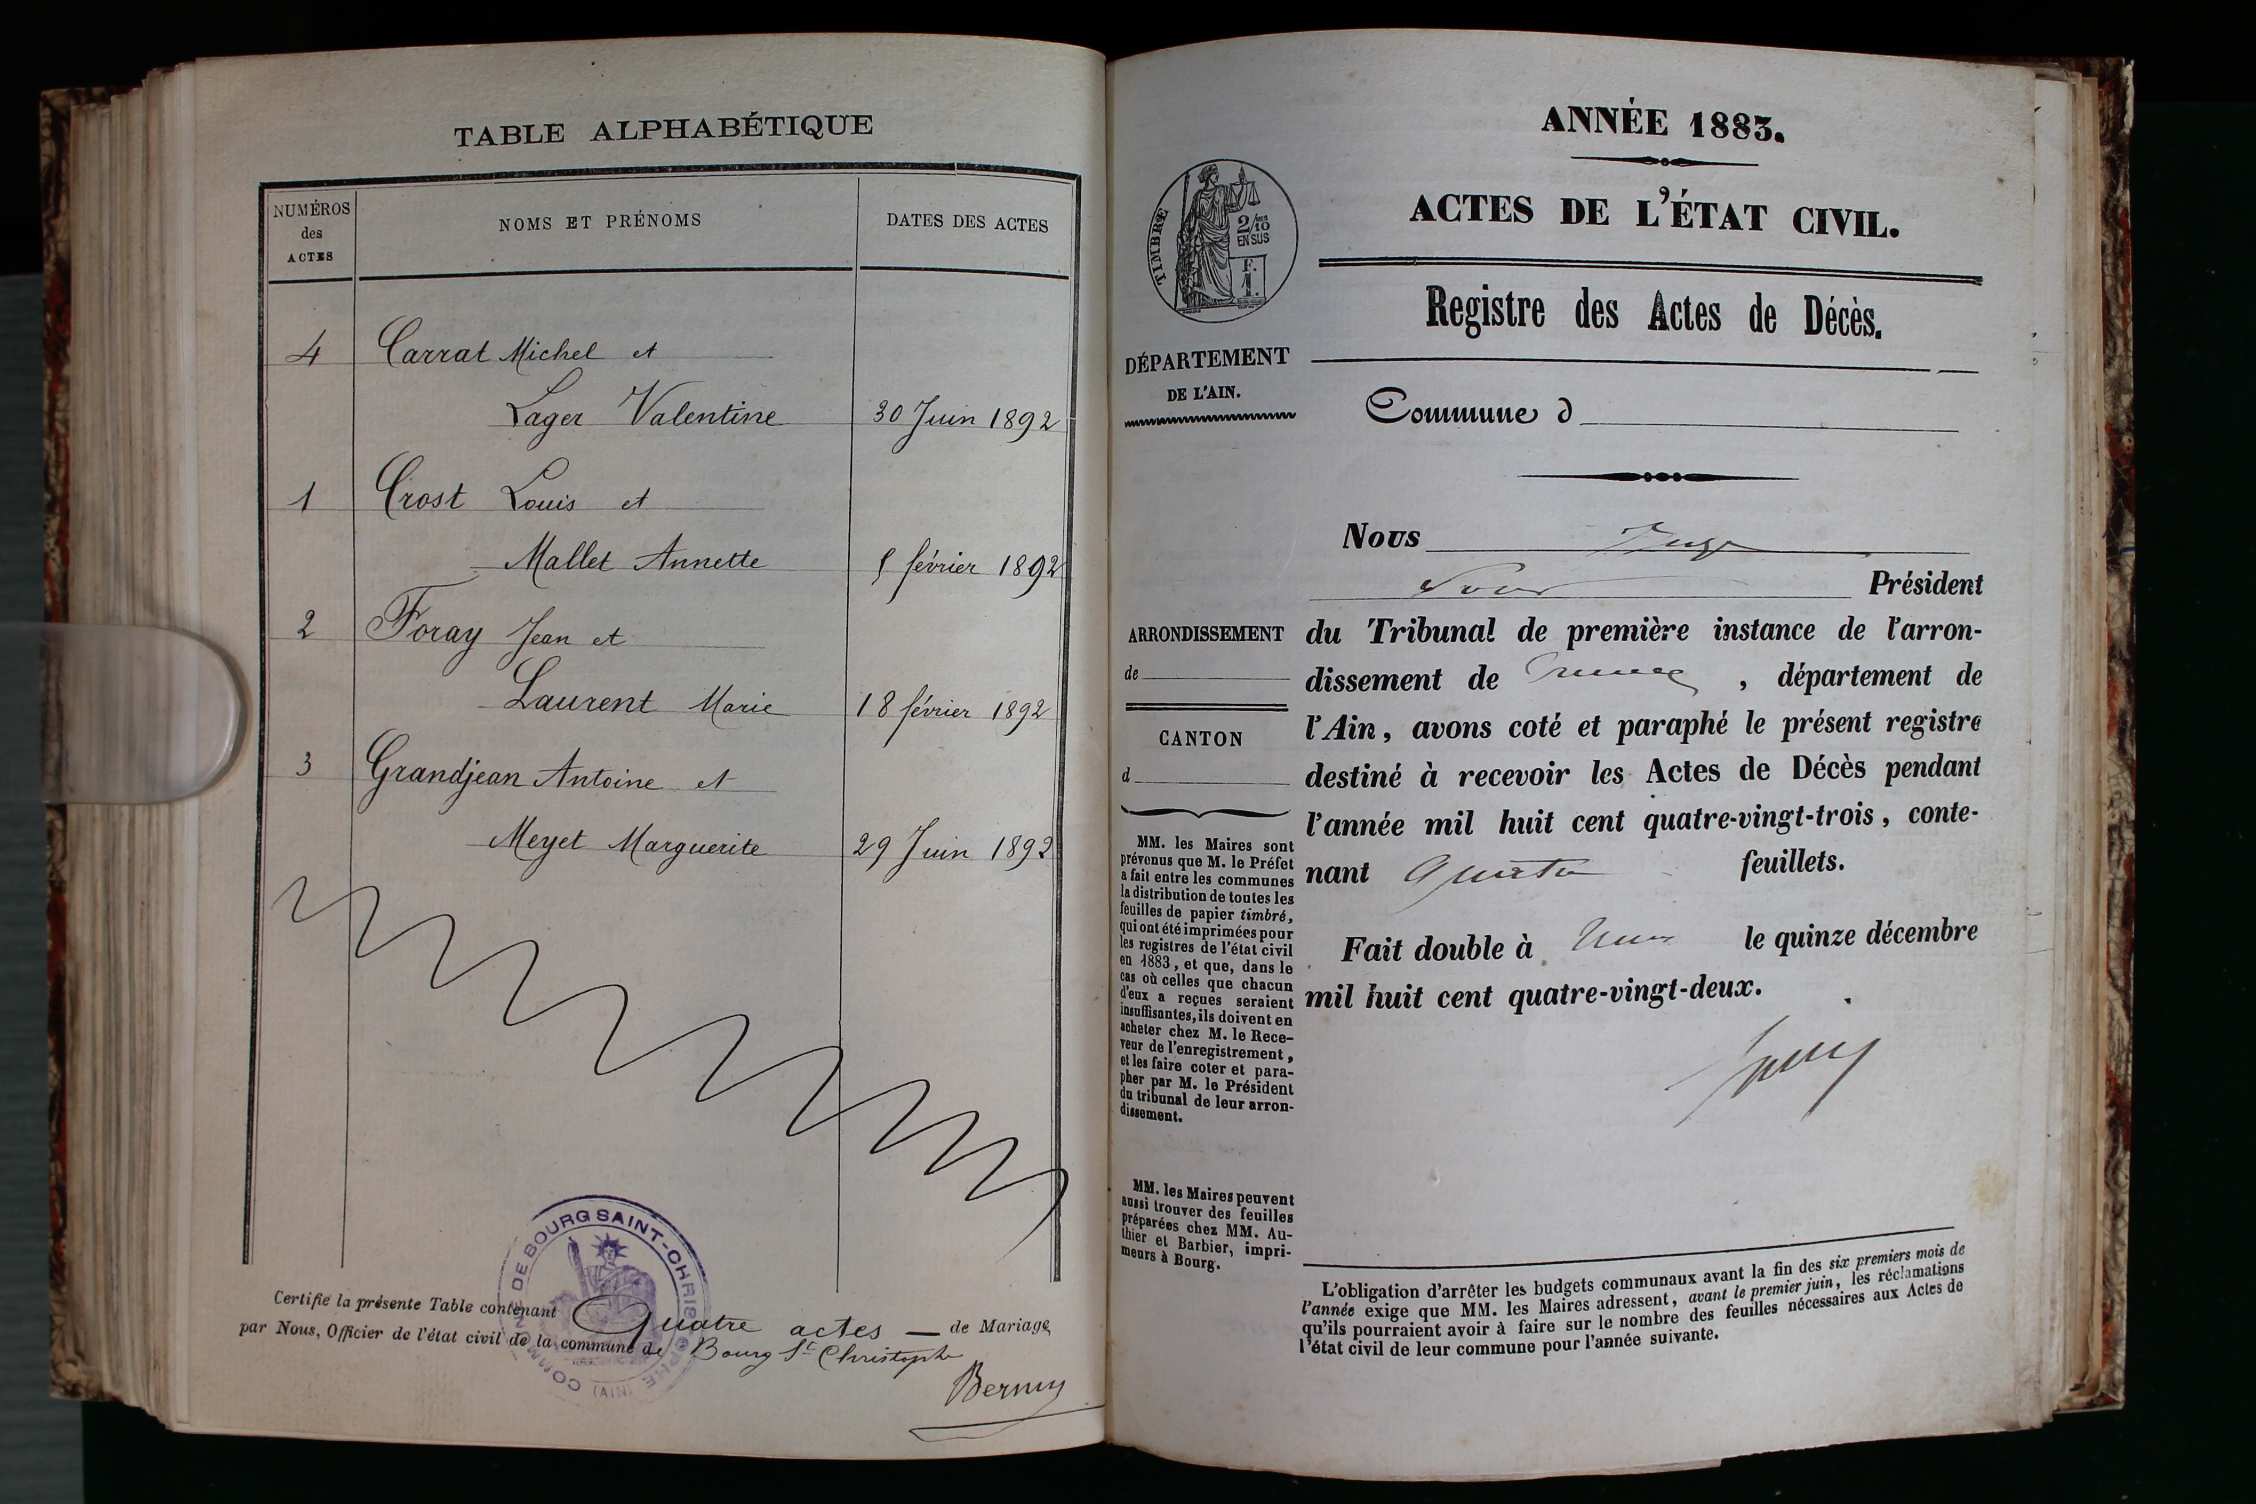 TABLE ALPHABÉTIQUE
NUMÉROS des ACTES NOMS ET PRÉNOMS DATES DES ACTES
4 Carrat Michel et
Lager Valentine 30 Juin 1892
1 Crost Louis et
Mallet Annette février 1892
2 Foray Jean et
Laurent Marie 18 février 1892
3 Grandjean Antoine et
Meyet Marguerite 29 Juin 1892
COMMUNE DE BOURG SAINT-CHRISTOPHE
(AIN)
Certifie la présente Table contenant Quatre actes — de Mariage
par Nous, Officier de l'état civil de la commune de Bourg St Christophe
ANNÉE 1883.
ACTES DE L'ÉTAT CIVIL.
Registre des Actes de Décès.
TIMBRE
2/10
EN SUS
F.
1.
DÉPARTEMENT
DE L'AIN.
Commune d
Nous Juge
Pour Président
ARRONDISSEMENT
de
CANTON
d
du Tribunal de première instance de l'arron-
dissement de , département de
l'Ain, avons coté et paraphé le présent registre
destiné à recevoir les Actes de Décès pendant
l'année mil huit cent quatre-vingt-trois, conte-
nant feuillets.
Fait double à le quinze décembre
mil huit cent quatre-vingt-deux.
MM. les Maires sont
prévenus que M. le Préfet
a fait entre les communes
la distribution de toutes les
feuilles de papier timbré,
qui ont été imprimées pour
les registres de l'état civil
en 1883, et que, dans le
cas où celles que chacun
d'eux a reçues seraient
insuffisantes, ils doivent en
acheter chez M. le Rece-
veur de l'enregistrement,
et les faire coter et para-
pher par M. le Président
du tribunal de leur arron-
dissement.
MM. les Maires peuvent
aussi trouver des feuilles
préparées chez MM. Au-
thier et Barbier, impri-
meurs à Bourg.
L'obligation d'arrêter les budgets communaux avant la fin des six premiers mois de
l'année exige que MM. les Maires adressent, avant le premier juin, les réclamations
qu'ils pourraient avoir à faire sur le nombre des feuilles nécessaires aux Actes de
l'état civil de leur commune pour l'année suivante.